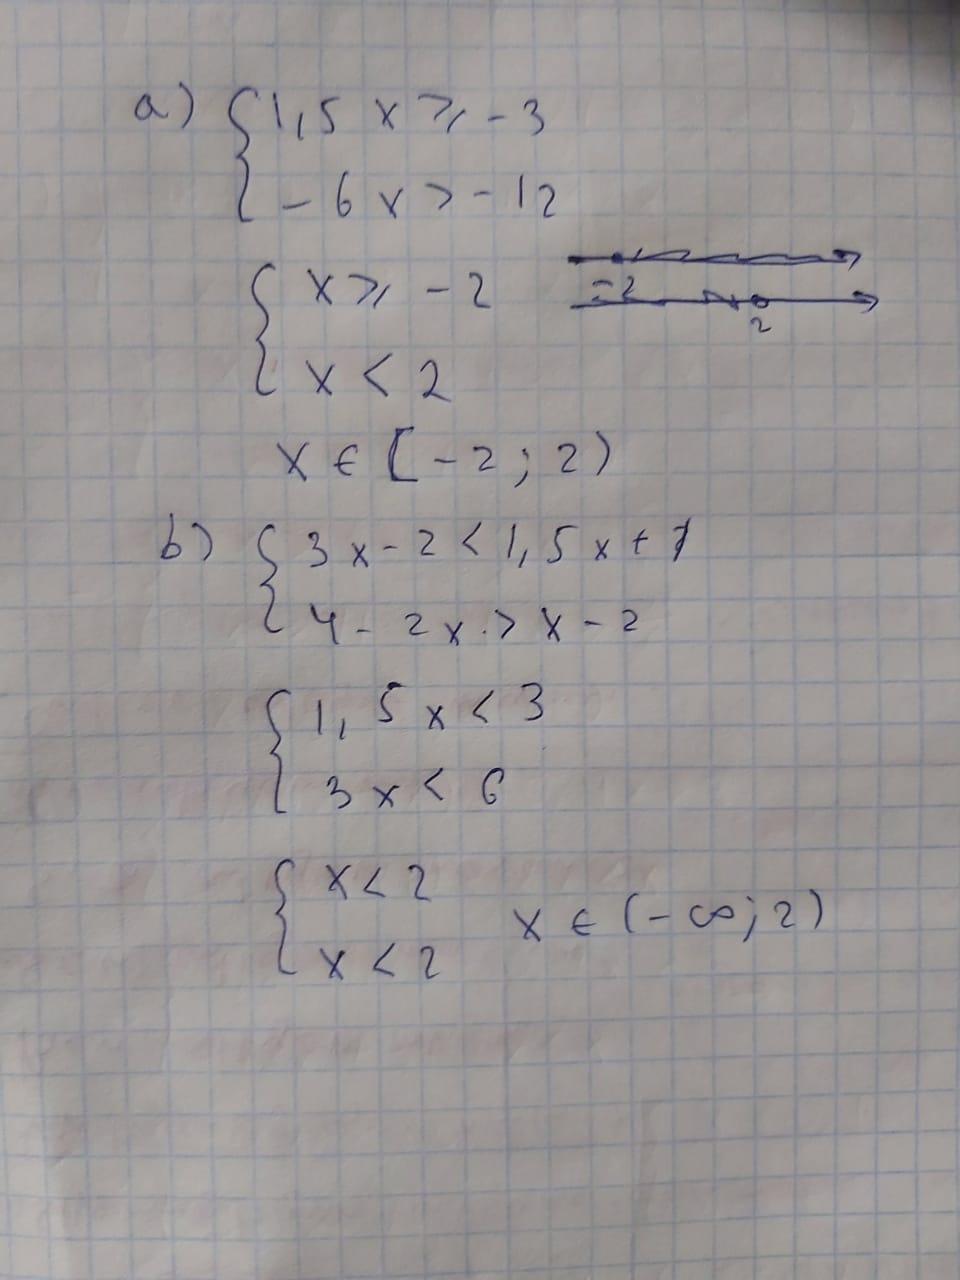 a) { 1,5 x ⩾ -3
- 6 x > - 12
{ x ⩾ - 2
-2
2
x < 2
x ∈ [ - 2 ; 2 )
b) { 3 x - 2 < 1,5 x + 1
4 - 2 x > x - 2
{ 1,5 x < 3
3 x < 6
{ x < 2
x < 2
x ∈ ( - ∞ ; 2 )